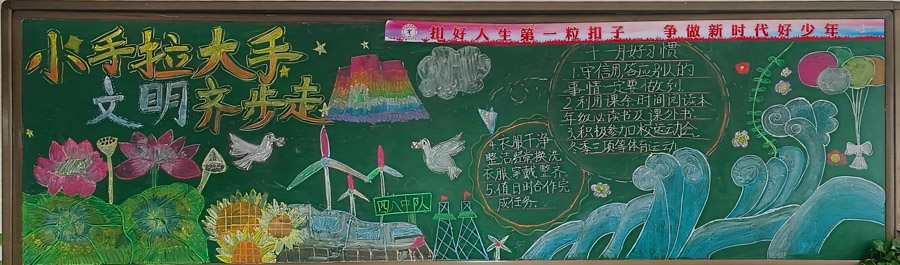 扣好人生第一粒扣子 争做新时代好少年
小手拉大手
文明齐步走
十一月好习惯
1.守信用答应别人的
事情一定要做到.
2.利用课余时间阅读本
年级必读书及课外书
3.积极参加校运动会.
冬季三项等体育运动
4.衣服干净
整洁经常换洗
衣服穿戴整齐
5.值日时合作完
成任务.
四八中队